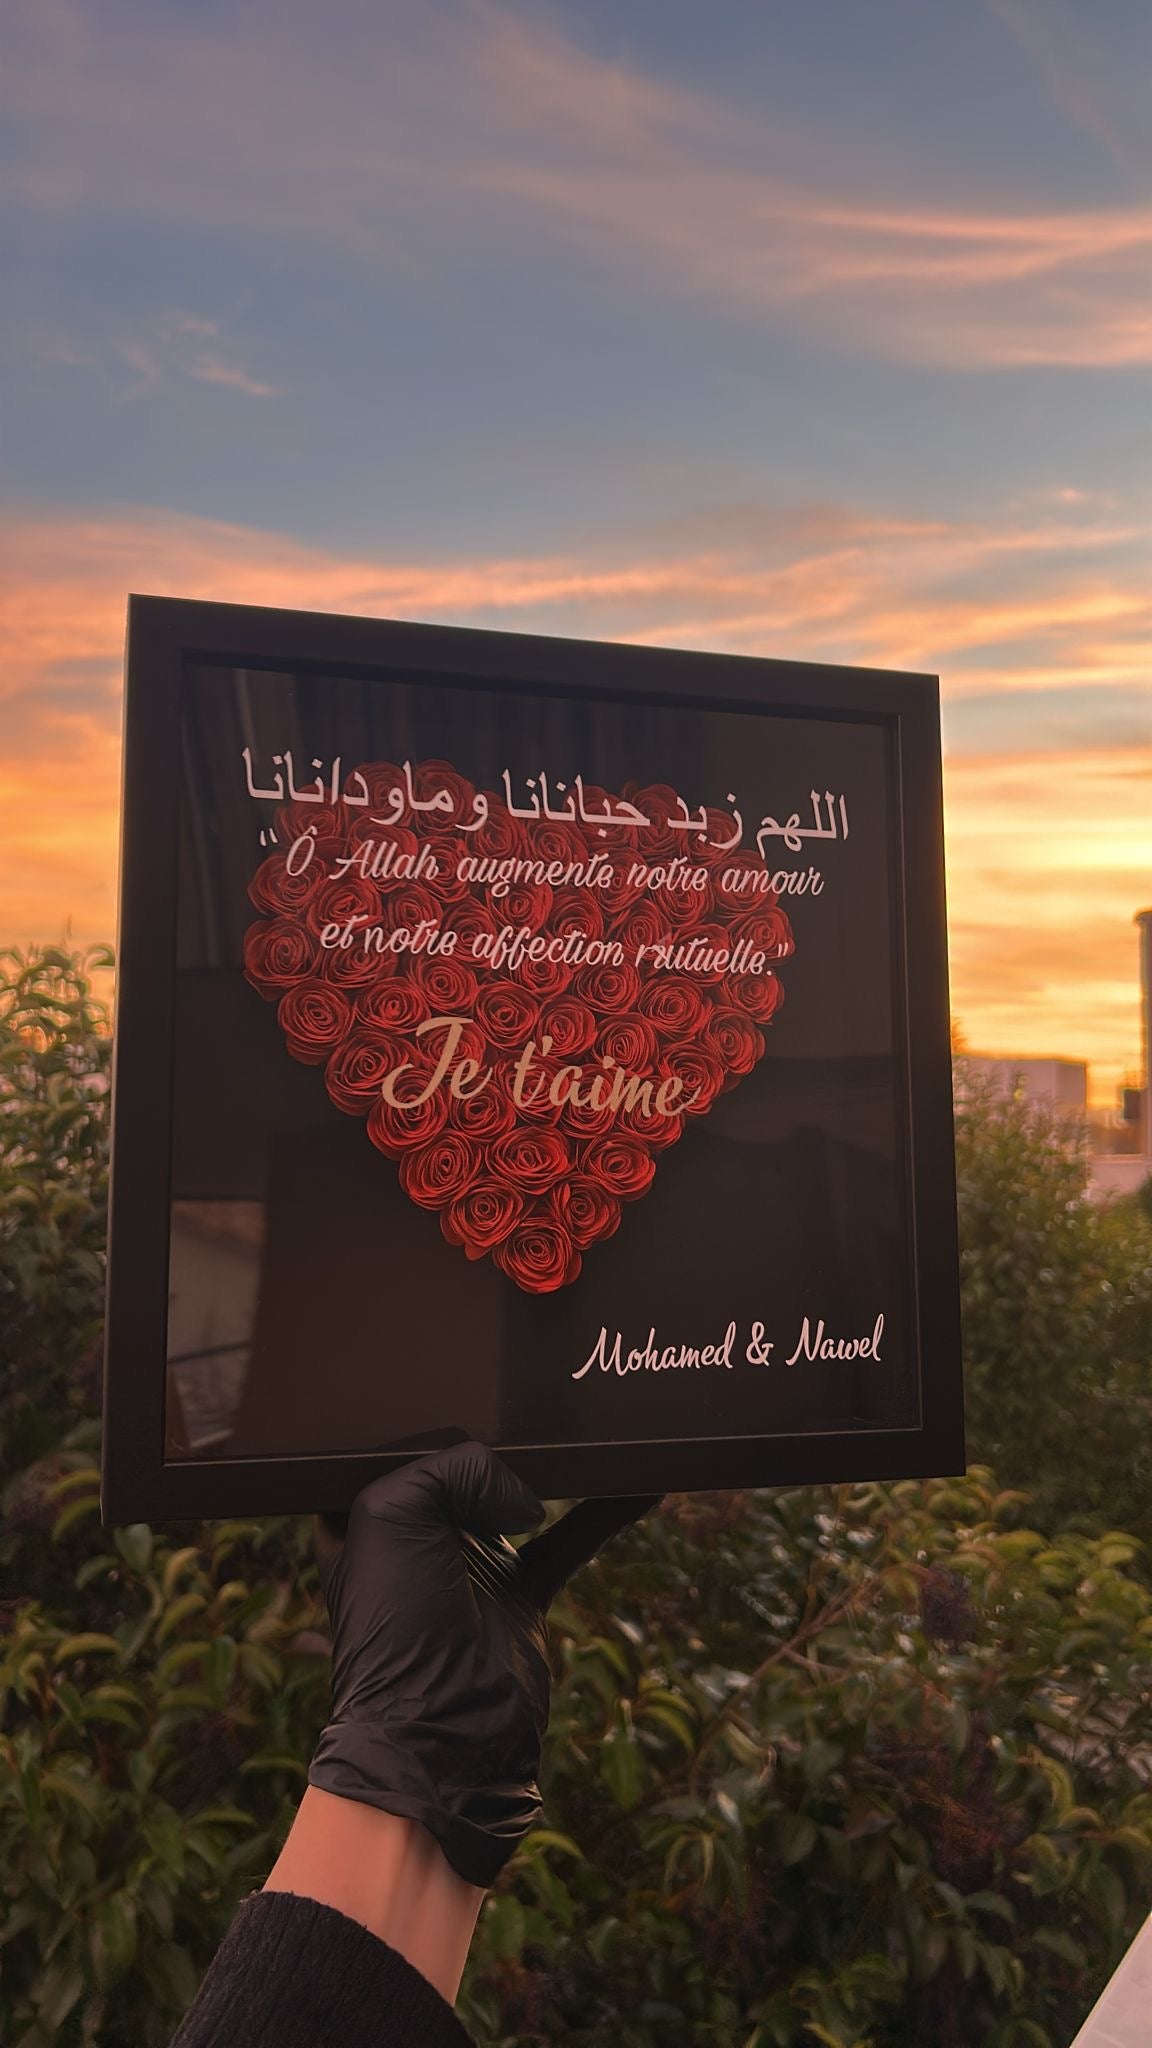 اللهم زبد حبانانا و ماو دانانا
"Ô Allah augmente notre amour
et notre affection mutuelle."
Je t'aime
Mohamed & Nawel